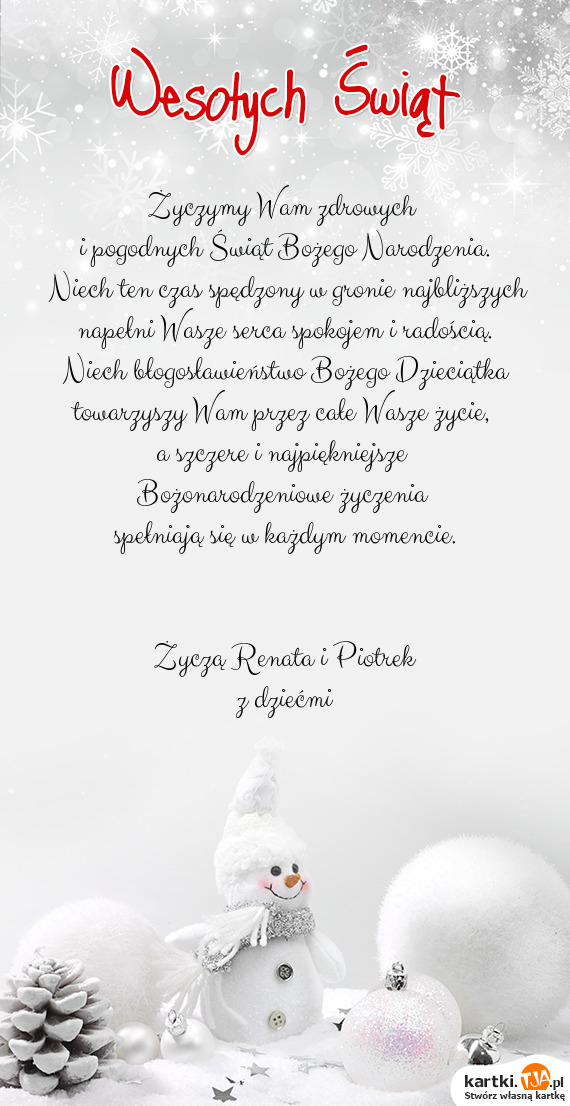 Wesołych Świąt
Życzymy Wam zdrowych
i pogodnych Świąt Bożego Narodzenia.
Niech ten czas spędzony w gronie najbliższych
napełni Wasze serca spokojem i radością.
Niech błogosławieństwo Bożego Dzieciątka
towarzyszy Wam przez całe Wasze życie,
a szczere i najpiękniejsze
Bożonarodzeniowe życzenia
spełniają się w każdym momencie.
Życzą Renata i Piotrek
z dziećmi
kartki.TJA.pl
Stwórz własną kartkę